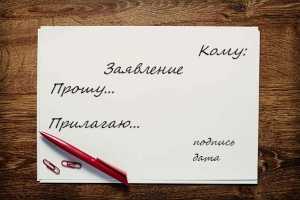 Кому:
Заявление
Прошу...
Прилагаю...
подпись
дата